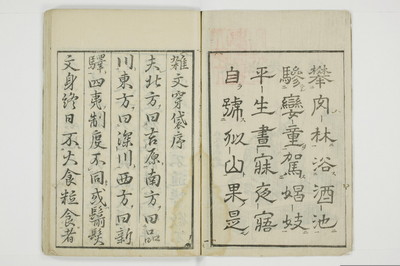 攀肉林浴酒池
驂孌童駕娼妓
平生晝寐夜寤
自號似山果是
雜文穿袋序
夫北方曰吉原南方曰品
川東方曰深川西方曰新
驛四夷制度不同或髪
文身終日不火食粒食者